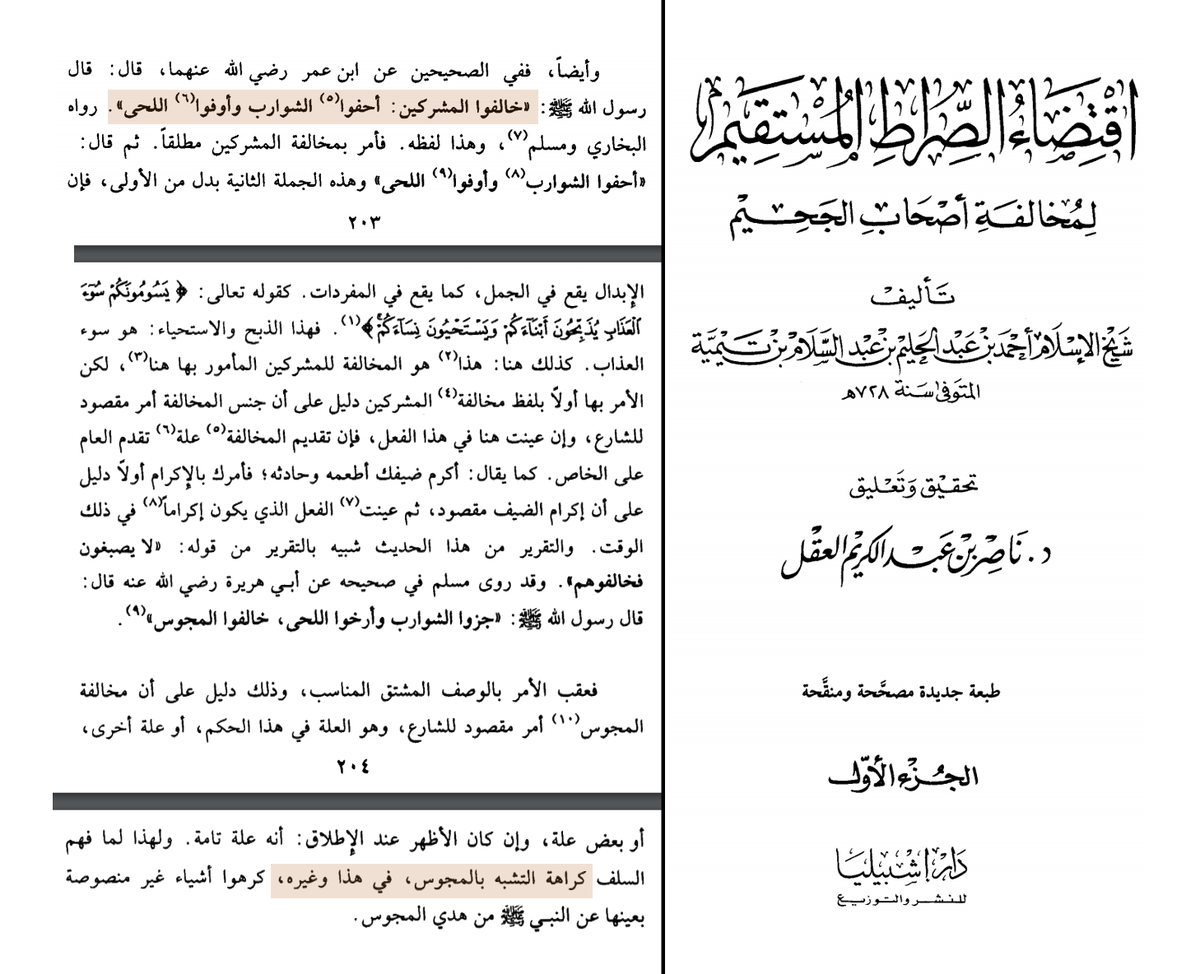 اقْتِضَاءُ الصِّرَاطِ المُسْتَقِيمِ
لِمُخَالَفَةِ أَصْحَابِ الجَحِيمِ
تَأليفْ
شَيْخُ الإِسْلَامِ أَحمَد بْن عَبد الحَليم بْن عَبد السَّلَام بْن تَيمِيَّة
المتوَفى سَنة ٧٢٨هـ
تحقيق وَتَعليق
د. نَاصِر بْن عَبد الكَريم العَقل
طبعة جديدة مصحَّحة ومنقَّحة
الجُزءُ الأوَّل
دَارُ إشبيليَا
للنشر والتوزيع
وأيضاً، ففي الصحيحين عن ابن عمر رضي الله عنهما، قال: قال
رسول الله ﷺ: «خالفوا المشركين: أحفوا(٥) الشوارب وأوفوا(٦) اللحى». رواه
البخاري ومسلم(٧)، وهذا لفظه. فأمر بمخالفة المشركين مطلقاً. ثم قال:
«أحفوا الشوارب(٨) وأوفوا(٩) اللحى» وهذه الجملة الثانية بدل من الأولى، فإن
٢٠٣
الإبدال يقع في الجمل، كما يقع في المفردات. كقوله تعالى: ﴿يَسُومُونَكُمْ سُوٓءَ
ٱلْعَذَابِ يُذَبِّحُونَ أَبْنَآءَكُمْ وَيَسْتَحْيُونَ نِسَآءَكُمْ﴾(١). فهذا الذبح والاستحياء: هو سوء
العذاب. كذلك هنا: هذا(٢) هو المخالفة للمشركين المأمور بها هنا(٣)، لكن
الأمر بها أولاً بلفظ مخالفة(٤) المشركين دليل على أن جنس المخالفة أمر مقصود
للشارع، وإن عينت هنا في هذا الفعل، فإن تقديم المخالفة(٥) علة(٦) تقدم العام
على الخاص. كما يقال: أكرم ضيفك أطعمه وحادثه؛ فأمرك بالإكرام أولاً دليل
على أن إكرام الضيف مقصود، ثم عينت(٧) الفعل الذي يكون إكراماً(٨) في ذلك
الوقت. والتقرير من هذا الحديث شبيه بالتقرير من قوله: «لا يصبغون
فخالفوهم». وقد روى مسلم في صحيحه عن أبي هريرة رضي الله عنه قال:
قال رسول الله ﷺ: «جزوا الشوارب وأرخوا اللحى، خالفوا المجوس»(٩).
فعقب الأمر بالوصف المشتق المناسب، وذلك دليل على أن مخالفة
المجوس(١٠) أمر مقصود للشارع، وهو العلة في هذا الحكم، أو علة أخرى،
٢٠٤
أو بعض علة، وإن كان الأظهر عند الإطلاق: أنه علة تامة. ولهذا لما فهم
السلف كراهة التشبه بالمجوس، في هذا وغيره، كرهوا أشياء غير منصوصة
بعينها عن النبي ﷺ من هدي المجوس.